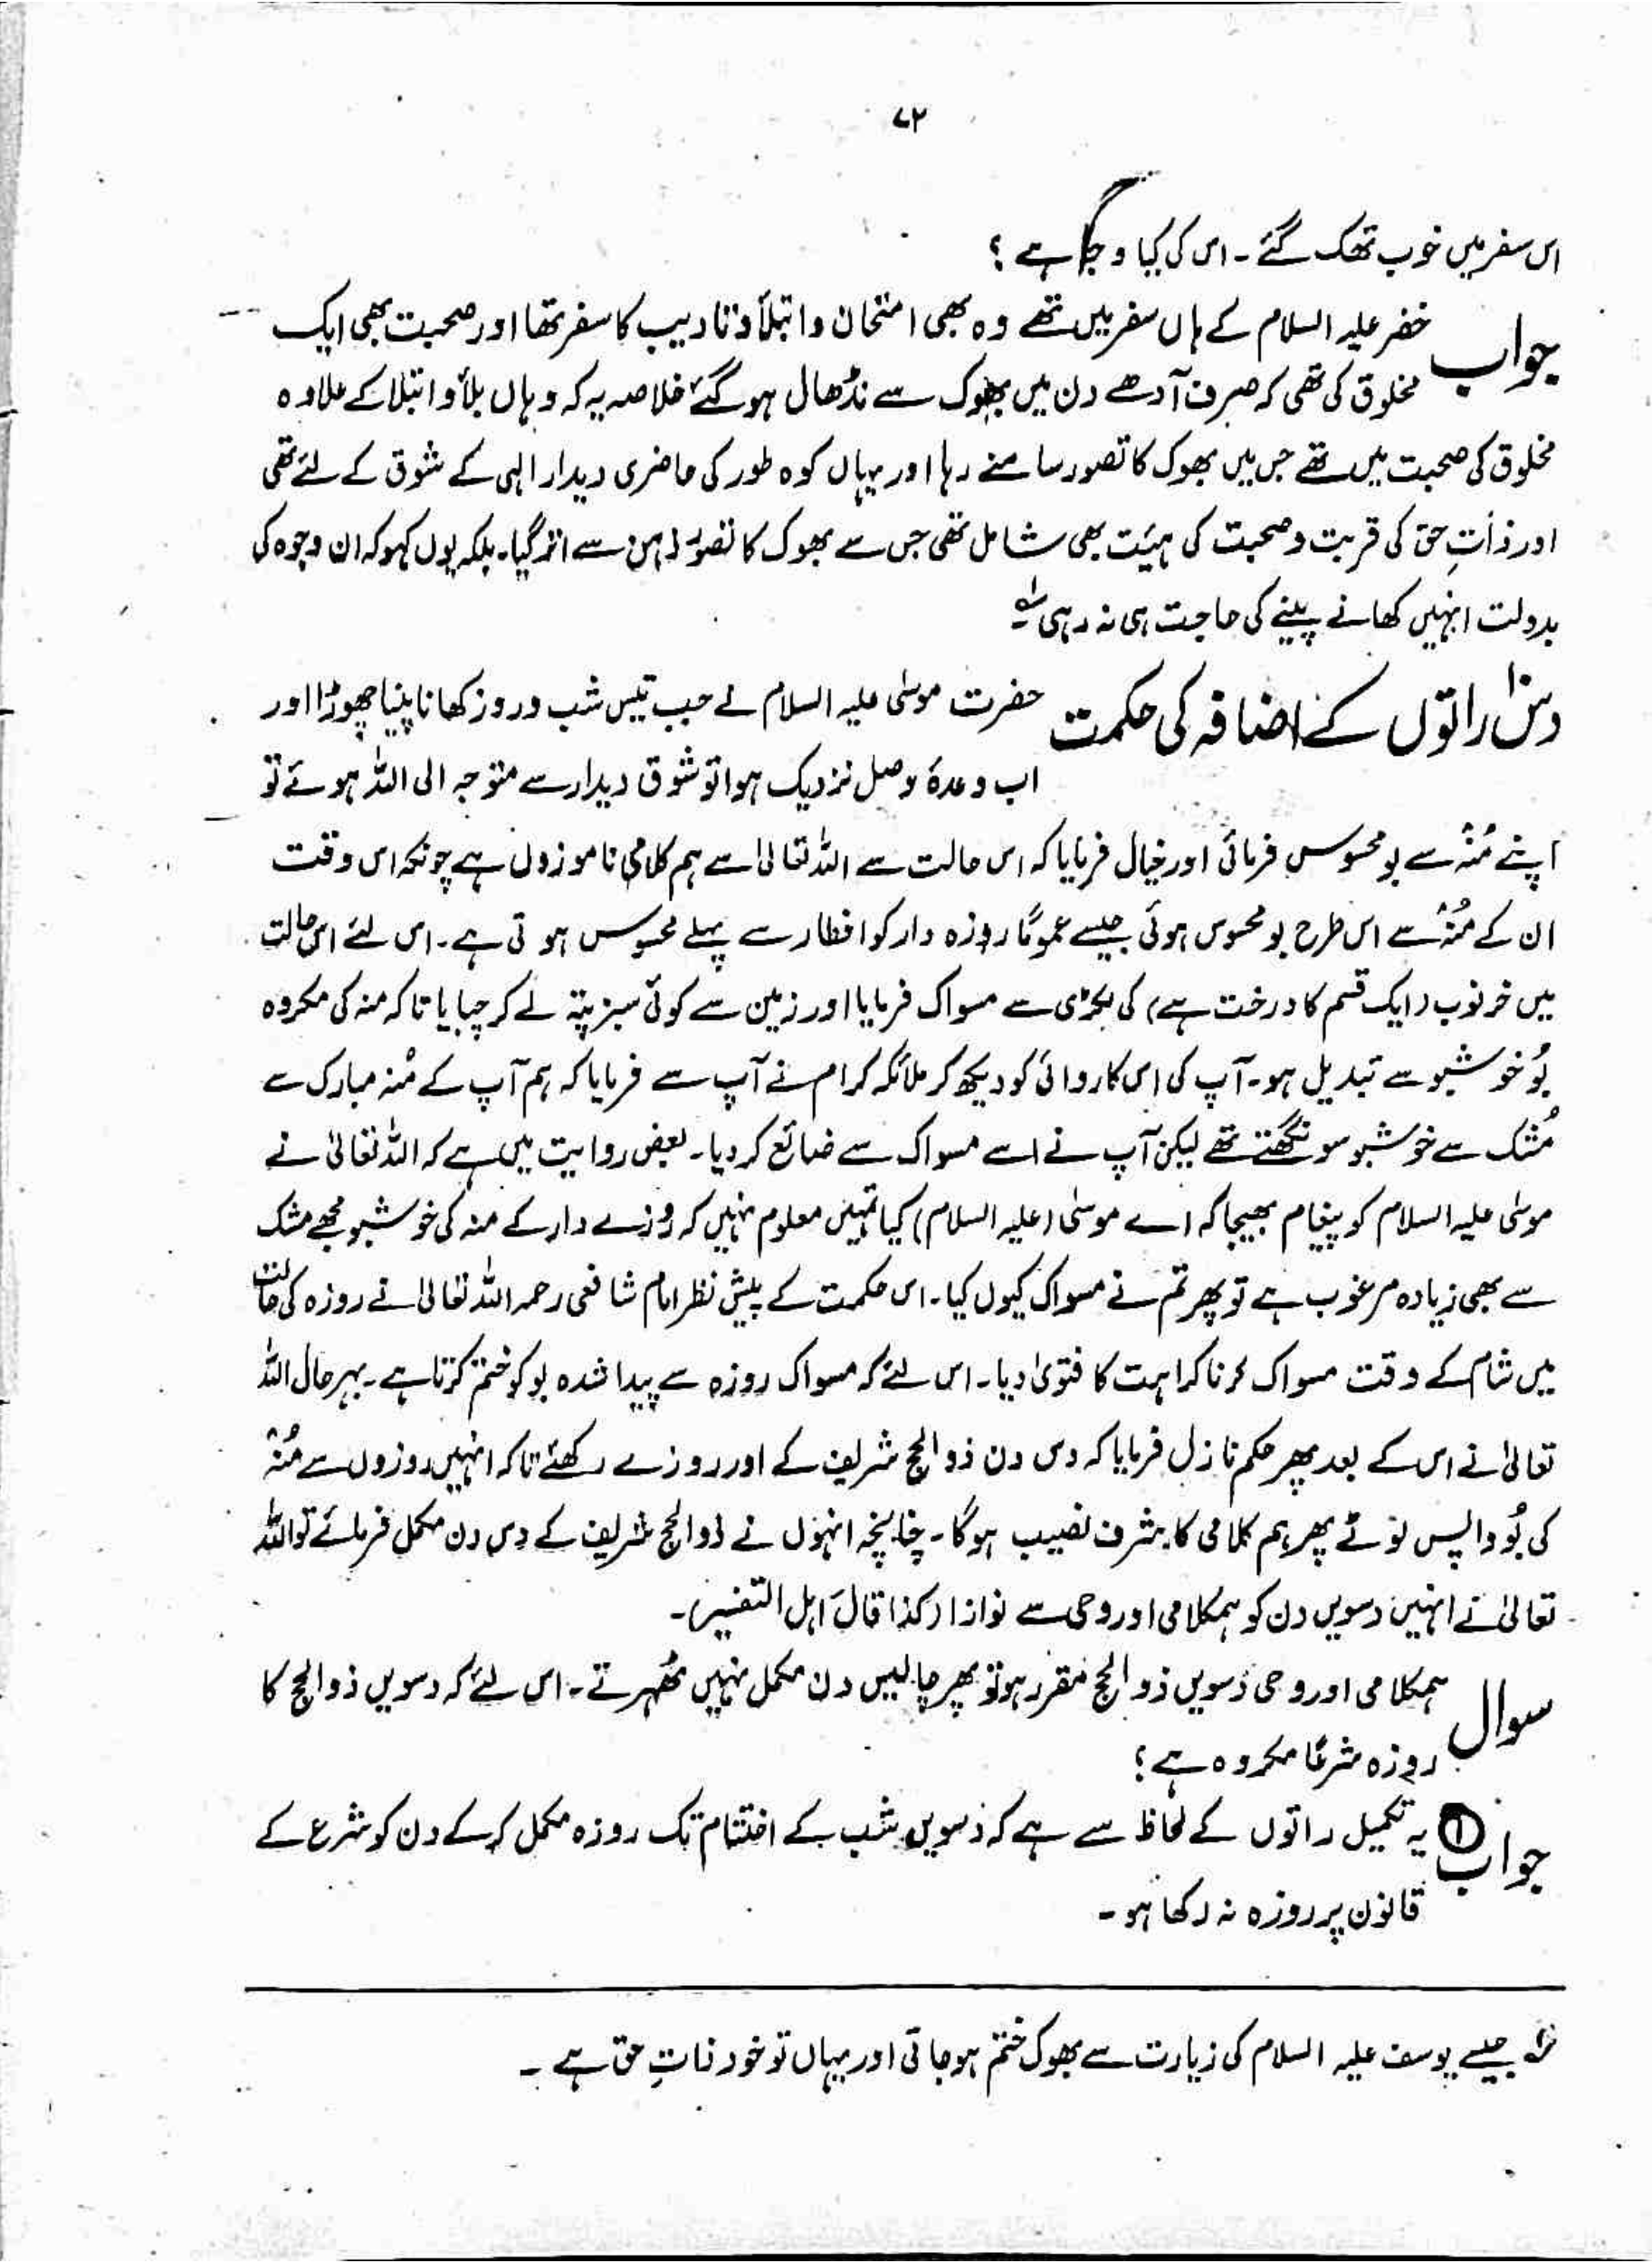 ۷۲
اس سفر میں خوب تھک گئے ۔ اس کی کیا وجہ ہے ؟
جواب خضر علیہ السلام کے ہاں سفر میں تھے وہ بھی امتحان وابتلأ وتادیب کا سفر تھا اور صحبت بھی ایک
مخلوق کی تھی کہ صرف آدھے دن میں بھوک سے نڈھال ہو گئے خلاصہ یہ کہ وہاں بلأ وابتلا کے علاوہ
مخلوق کی صحبت میں تھے جس میں بھوک کا تصور سامنے رہا اور یہاں کوہ طور کی حاضری دیدار الٰہی کے شوق کے لئے تھی
اور ذاتِ حق کی قربت وصحبت کی ہیئت بھی شامل تھی جس سے بھوک کا تصوّر ذہن سے اتر گیا۔ بلکہ یوں کہو کہ ان وجوہ کی
بدولت انہیں کھانے پینے کی حاجت ہی نہ رہی
دس راتوں کے اضافہ کی حکمت حضرت موسٰی علیہ السلام نے جب تیس شب وروز کھانا پینا چھوڑا اور
اب وعدۂ وصل نزدیک ہوا تو شوق دیدار سے متوجہ الی اللہ ہوئے تو
اپنے مُنہ سے بو محسوس فرمائی اور خیال فرمایا کہ اس حالت سے اللہ تعالیٰ سے ہم کلامی ناموزوں ہے چونکہ اس وقت
ان کے مُنہ سے اس طرح بو محسوس ہوئی جیسے عموماً روزہ دار کو افطار سے پہلے محسوس ہوتی ہے۔ اس لئے اس حالت
میں خرنوب (ایک قسم کا درخت ہے) کی لکڑی سے مسواک فرمایا اور زمین سے کوئی سبز پتہ لے کر چبایا تاکہ منہ کی مکروہ
بُو خوشبو سے تبدیل ہو۔ آپ کی اس کاروائی کو دیکھ کر ملائکہ کرام نے آپ سے فرمایا کہ ہم آپ کے مُنہ مبارک سے
مُشک سے خوشبو سونگھتے تھے لیکن آپ نے اسے مسواک سے ضائع کر دیا۔ بعض روایت میں ہے کہ اللہ تعالیٰ نے
موسٰی علیہ السلام کو پیغام بھیجا کہ اے موسٰی (علیہ السلام) کیا تمہیں معلوم نہیں کہ روزے دار کے منہ کی خوشبو مجھے مشک
سے بھی زیادہ مرغوب ہے تو پھر تم نے مسواک کیوں کیا۔ اس حکمت کے پیش نظر امام شافعی رحمہ اللہ تعالیٰ نے روزہ کی حالت
میں شام کے وقت مسواک کرنا کراہت کا فتویٰ دیا۔ اس لئے کہ مسواک روزہ سے پیدا شدہ بو کو ختم کرتا ہے۔ بہرحال اللہ
تعالیٰ نے اس کے بعد پھر حکم نازل فرمایا کہ دس دن ذوالحج شریف کے اور روزے رکھئے تاکہ انہیں روزوں سے مُنہ
کی بُو واپس لوٹے پھر ہم کلامی کا شرف نصیب ہوگا۔ چنانچہ انہوں نے ذوالحج شریف کے دس دن مکمل فرمائے تو اللہ
تعالیٰ نے انہیں دسویں دن کو ہمکلامی اور وحی سے نوازا (کذا قال اہل التفسیر)۔
سوال ہمکلامی اور وحی دسویں ذوالحج مقرر ہو تو پھر چالیس دن مکمل نہیں ٹھہرتے۔ اس لئے کہ دسویں ذوالحج کا
روزہ شرعاً مکروہ ہے ؟
جواب ① یہ تکمیل راتوں کے لحاظ سے ہے کہ دسویں شب کے اختتام تک روزہ مکمل کر کے دن کو شرع کے
قانون پر روزہ نہ رکھا ہو ۔
جیسے یوسف علیہ السلام کی زیارت سے بھوک ختم ہو جاتی اور یہاں تو خود ذاتِ حق ہے ۔